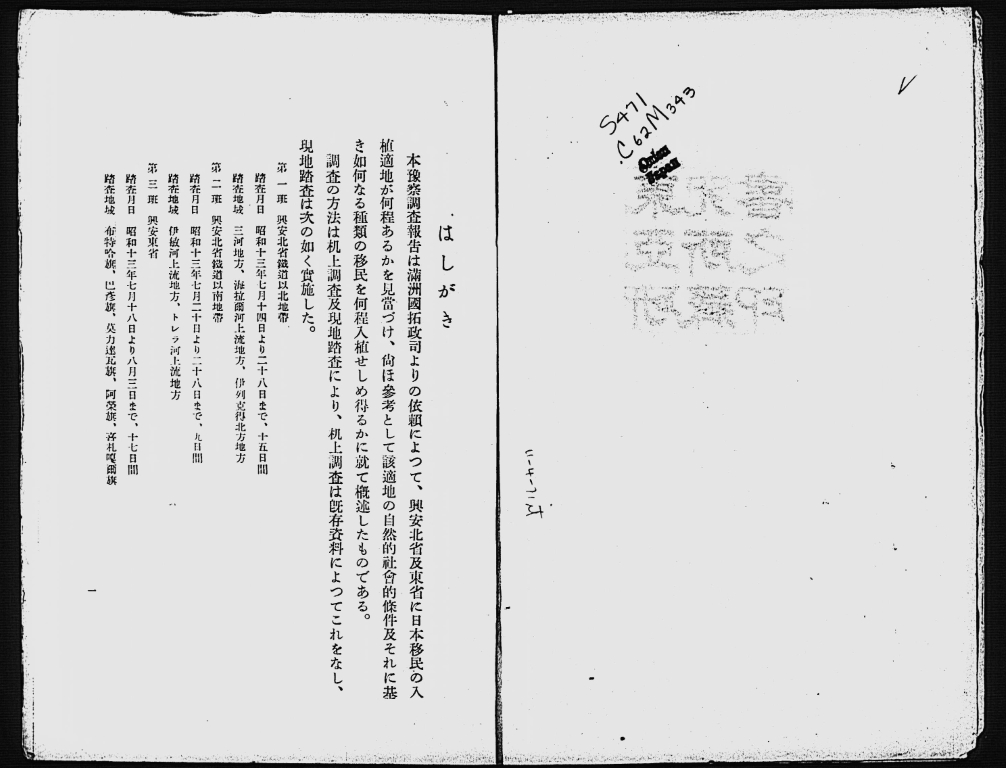 S471
.C62M343
Orien
Japan
はしがき
本豫察調査報告は滿洲國拓政司よりの依賴によつて、興安北省及東省に日本移民の入
植適地が何程あるかを見當づけ、尙ほ參考として該適地の自然的社會的條件及それに基
き如何なる種類の移民を何程入植せしめ得るかに就て槪述したものである。
調査の方法は机上調査及現地踏査により、机上調査は旣存資料によつてこれをなし、
現地踏査は次の如く實施した。
第一班 興安北省鐵道以北地帶
踏査月日 昭和十三年七月十四日より二十八日まで、十五日間
踏査地域 三河地方、海拉爾河上流地方、伊列克得北方地方
第二班 興安北省鐵道以南地帶
踏査月日 昭和十三年七月二十日より二十八日まで、九日間
踏査地域 伊敏河上流地方、トレラ河上流地方
第三班 興安東省
踏査月日 昭和十三年七月十八日より八月三日まで、十七日間
踏査地域 布特哈旗、巴彥旗、莫力達瓦旗、阿榮旗、喜札嘎爾旗
一